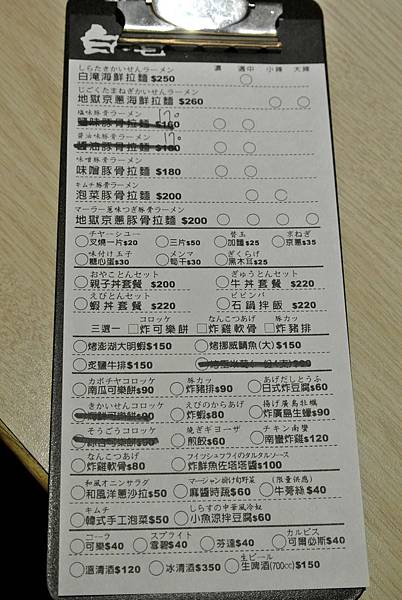 しらたきかいせんラーメン 濃 適中 小辣 大辣
白滝海鮮拉麵 $250
じごくたまねぎかいせんラーメン
地獄京蔥海鮮拉麵 $260
塩味豚骨ラーメン
鹽味豚骨拉麵 $160
醤油味豚骨ラーメン
醬油豚骨拉麵 $180
味噌豚骨ラーメン
味噌豚骨拉麵 $180
キムチ豚骨ラーメン
泡菜豚骨拉麵 $200
マーラー葱味つぎ豚骨ラーメン
地獄京蔥豚骨拉麵 $200
チヤーシユー 替玉 京ねぎ
叉燒一片$20 三片$50 加麵$25 京蔥$35
味付け玉子 メンマ きくらげ
糖心蛋$30 筍干$30 黑木耳$25
おやことんセット ぎゅうとんセット
親子丼套餐 $200 牛丼套餐 $220
えびとんセット ビビンバ
蝦丼套餐 $220 石鍋拌飯 $220
コロッケ なんこつあげ 豚カツ
三選一 炸可樂餅 炸雞軟骨 炸豬排
烤澎湖大明蝦$150 烤挪威鯖魚(大)$150
炙鹽牛排$150
カボチヤコロッケ 豚カツ あげだしとうふ
南瓜可樂餅$90 炸豬排$90 日式炸豆腐$60
きかいせんコロッケ えびのからあげ 揚げ廣島牡蠣
海鮮可樂餅$90 炸蝦$80 炸廣島生蠔$90
そうごうコロッケ 焼ぎギヨーザ チキン南蠻
綜合可樂餅$90 煎餃$60 南蠻炸雞$120
なんこつあげ フイッシュフライのタルタルソース
炸雞軟骨$80 炸鮮魚佐塔塔醬$100
和風オニンサラダ マージャン掛け旬野菜 (限量供應)
和風洋蔥沙拉$50 麻醬時蔬$60 牛蒡絲 $40
キムチ しらすの中華風冷奴
韓式手工泡菜$50 小魚涼拌豆腐$60
コーラ スプライト カルピス
可樂$40 雪碧$40 芬達$40 可爾必斯$40
生ビール
溫清酒$120 冰清酒$350 生啤酒(700cc)$150